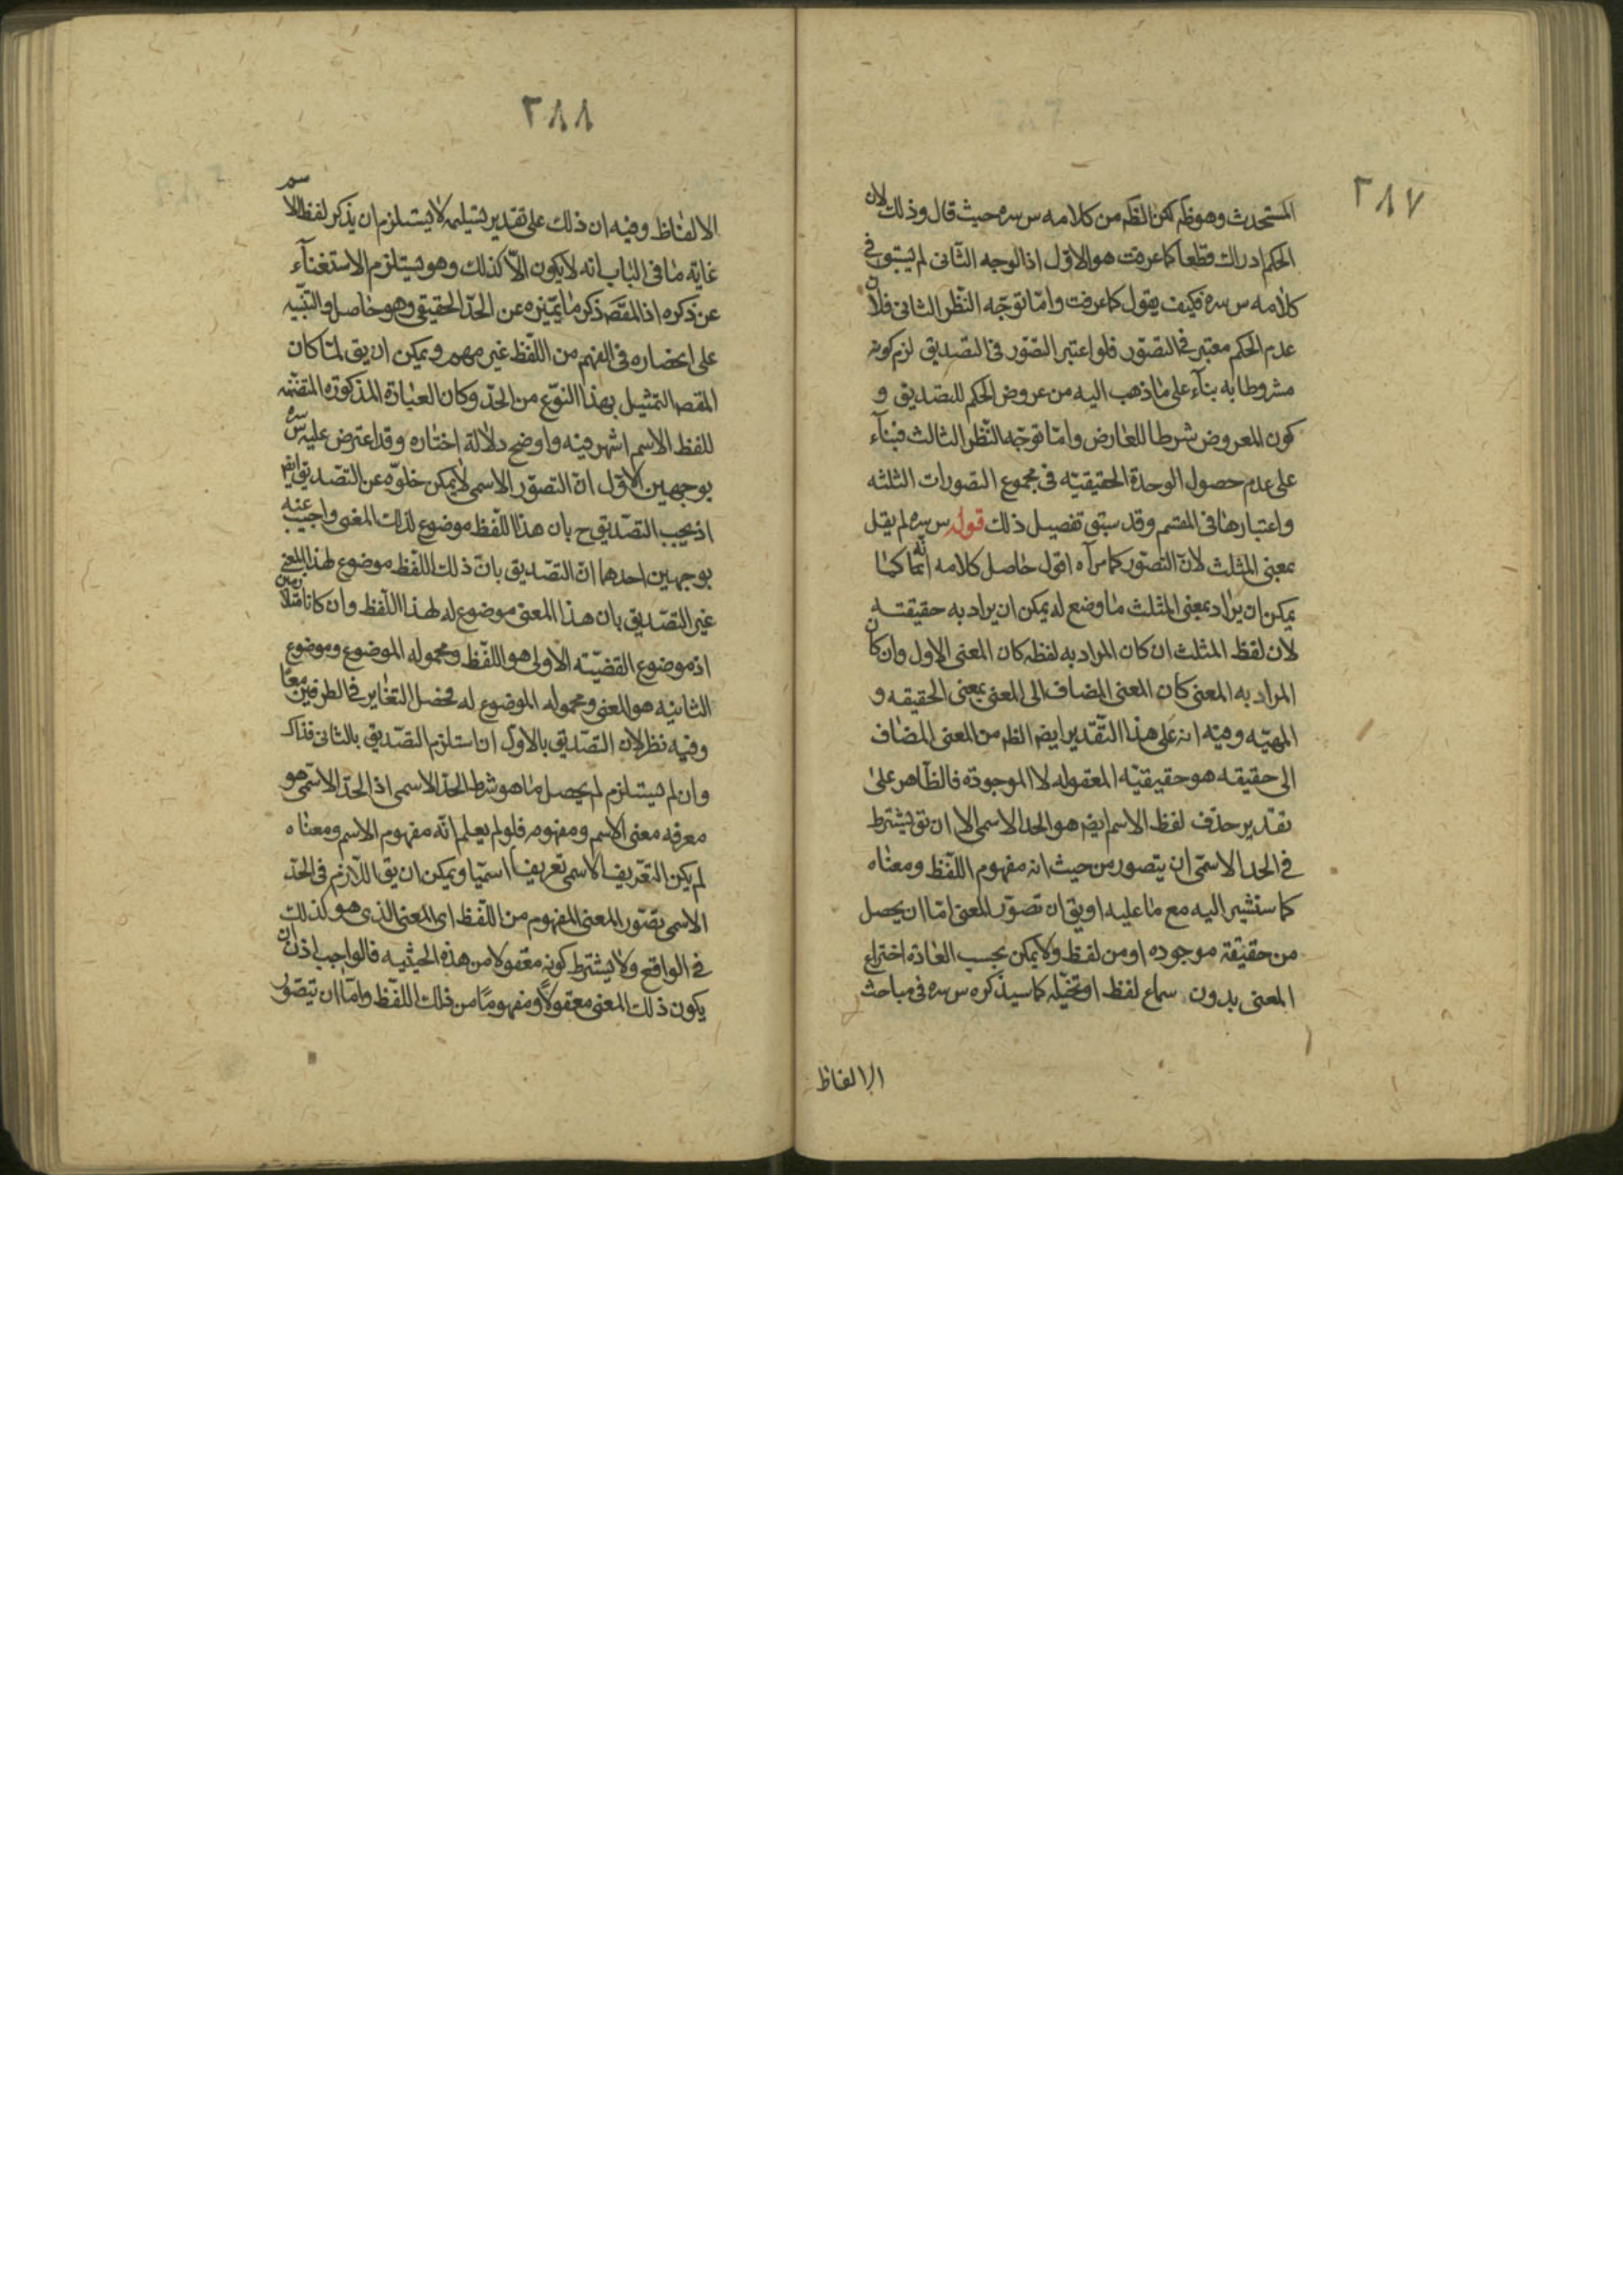 ٢٨٧
المستحدث وهو ظم لكن الظم من كلامه س سره حيث قال وذلك لان
الحكم ادراك قطعا كما عرفت هو الاول اذ الوجه الثانى لم يسبق فى
كلامه س سره فكيف يقول كما عرفت وامّا توجّه النّظر الثانى فلانّ
عدم الحكم معتبر فى التصوّر فلو اعتبر التصّور فى التصديق لزم كونه
مشروطا به بنآء على ما ذهب اليه من عروض الحكم للتصديق و
كون المعروض شرطا للعارض وامّا توجّه النّظر الثالث فبنآء
على عدم حصول الوحدة الحقيقيّه فى مجموع التصورات الثلثه
واعتبارها فى المقسم وقد سبق تفصيل ذلك قوله س سره لم يقل
بمعنى المثلث لانّ التصوّر كما مرآه اقول حاصل كلامه انّه كما
يمكن ان يراد بمعنى المثلث ما وضع له يمكن ان يراد به حقيقته
لان لفظ المثلث ان كان المراد به لفظه كان المعنى الاول وان كان
المراد به المعنى كان المعنى المضاف الى المعنى بمعنى الحقيقه و
المهيّه وفيه انه على هذا التّقدير ايضم الظم من المعنى المضاف
الى حقيقه هو حقيقيّه المعقوله لا الموجودة فالظّاهر على
تقدير حذف لفظ الاسم ايضم هو الحد الاسمى الا ان يق يشترط
فى الحد الاسمّى ان يتصور من حيث انه مفهوم اللّفظ ومعناه
كما سنشير اليه مع ما عليه او يق ان تصوّر المعنى امّا ان يحصل
من حقيقة موجوده او من لفظ ولا يمكن بحسب العادة اختراع
المعنى بدون سماع لفظ او تخيّله كما سيذكره س سره فى مباحث
الالفاظ
٢٨٨
الالفاظ وفيه ان ذلك على تقدير تسليمه لا يستلزم ان يذكر لفظ الاسم
غاية ما فى الباب انه لا يكون الاّ كذلك وهو يستلزم الاستغنآء
عن ذكره اذ المقصّ ذكر ما يمّيزه عن الحدّ الحقيقى وهو حاصل والتنبّيه
على احضاره فى الفهم من اللّفظ غير مهم ويمكن ان يق لمّا كان
المقص التمثيل بهذا النوّع من الحدّ وكان العبارة المذكورة المتضمّنه
للفظ الاسم اشهر فيه واوضح دلالة اختاره وقد اعترض عليه س سره
بوجهين الاوّل انّ التصوّر الاسمى لا يمكن خلوّه عن التصّديق ايضم
اذ يجب التصّديق ح بان هذا اللّفظ موضوع لذلك المعنى واجيب عنه
بوجهين احدهما انّ التصّديق بانّ ذلك اللّفظ موضوع لهذا المعنى
غير التصّديق بان هذا المعنى موضوع له لهذا اللّفظ وان كانا متلازمين
اذ موضوع القضيّته الاولى هو اللّفظ ومحموله الموضوع وموضوع
الثانيه هو المعنى ومحموله الموضوع له فحصل التغاير فى الطرفين معًا
وفيه نظر لان التصّديق بالاوّل ان استلزم التصّديق بالثانى فذاك
وان لم يستلزم لم يحصل ما هو شرط الحدّ الاسمى اذ الحدّ الاسّمى هو
معرفه معنى الاسم ومفهومه فلو لم يعلم انّه مفهوم الاسم ومعناه
لم يكن التعّريف الاسمى تعّريفا اسميّا ويمكن ان يق اللاّزم فى الحدّ
الاسمى تصّور المعنى المفهوم من اللّفظ اى المعنى الذى هو كذلك
فى الواقع ولا يشترط كونه معّقولا من هذه الحيثيه فالواجب اذن ان
يكون ذلك المعنى معقولاً ومفهومًا من ذلك اللّفظ وامّا ان يتصّور